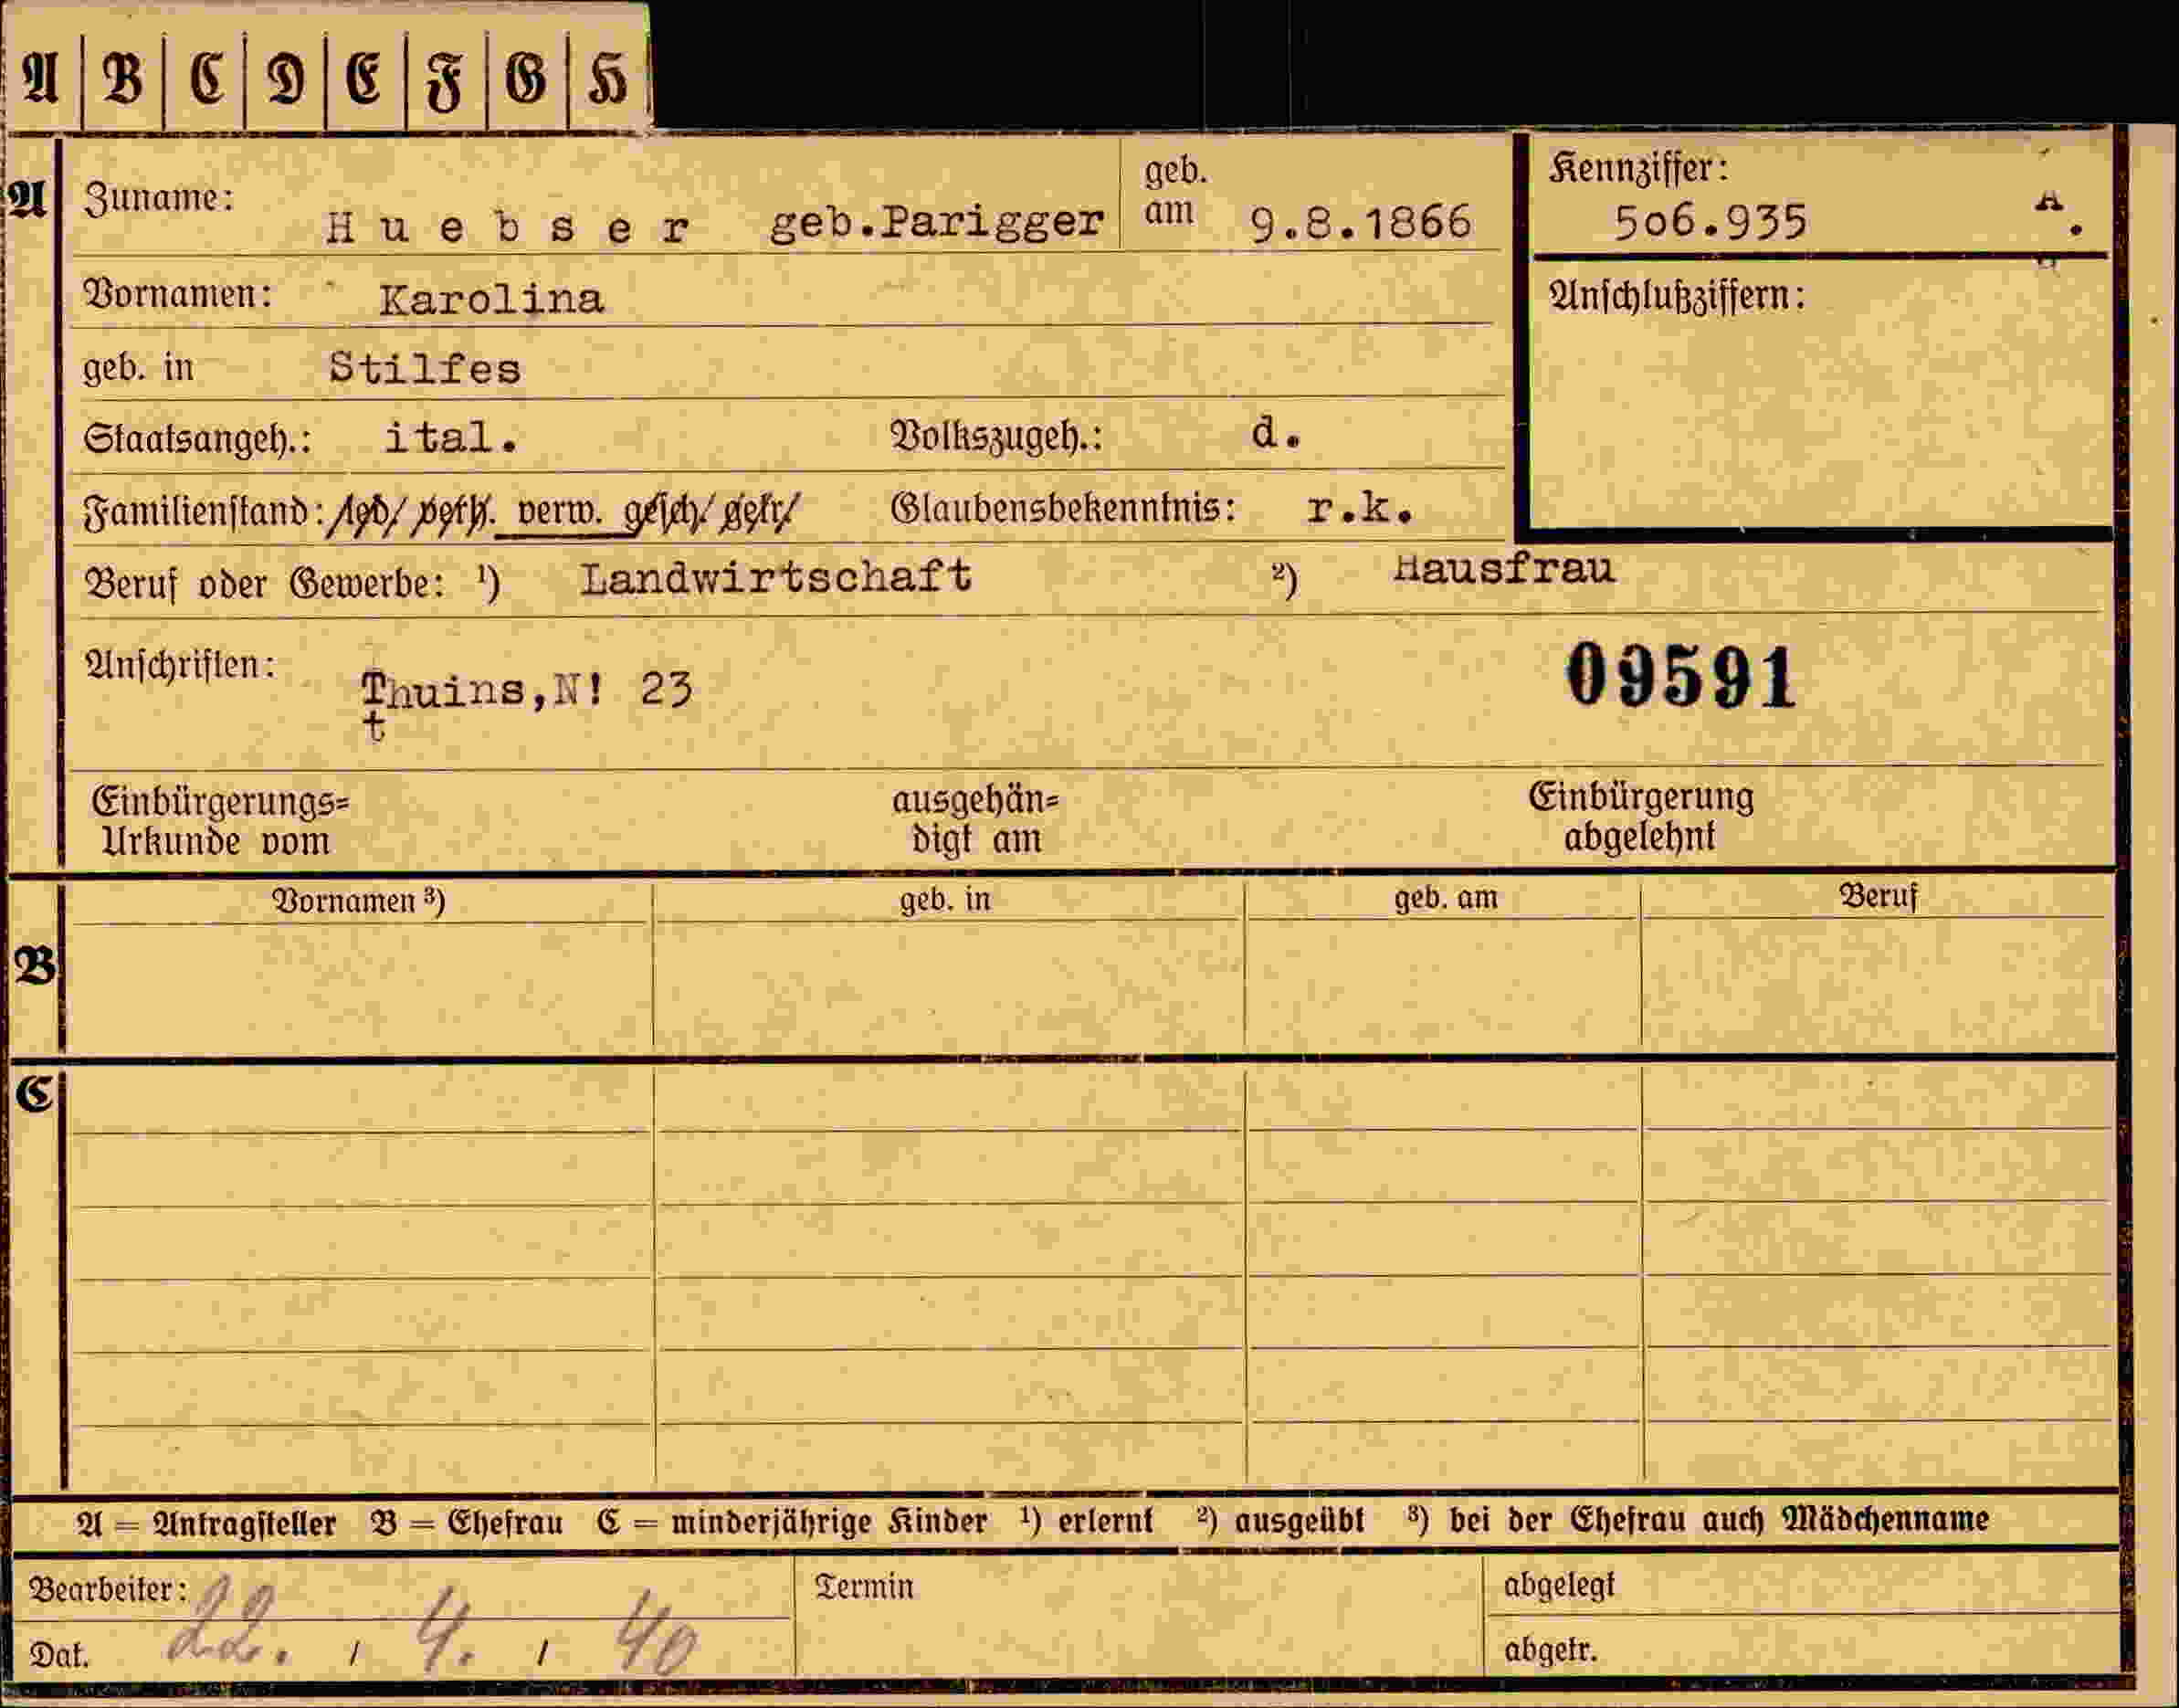 A B C D E F G H
A
Zuname: Huebser geb.Parigger geb. am 9.8.1866
Kennziffer: 506.935 A.
Vornamen: Karolina
Anschlußziffern:
geb. in Stilfes
Staatsangeh.: ital. Volkszugeh.: d.
Familienstand: led. verh. verw. gesch. getr. Glaubensbekenntnis: r.k.
Beruf oder Gewerbe: ¹) Landwirtschaft ²) Hausfrau
Anschriften: Thuins,N! 23
t
09591
Einbürgerungs=
Urkunde vom
ausgehän=
digt am
Einbürgerung
abgelehnt
Vornamen ³) geb. in geb. am Beruf
B
C
A = Antragsteller B = Ehefrau C = minderjährige Kinder ¹) erlernt ²) ausgeübt ³) bei der Ehefrau auch Mädchenname
Bearbeiter: Termin abgelegt
Dat. 22. / 4. / 40 abgetr.